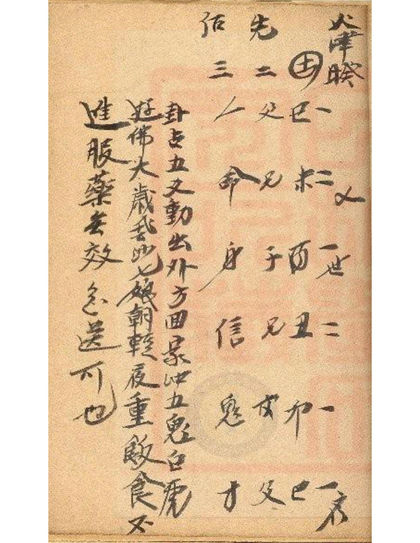 火澤睽
一二乂一世二一一
土巳未酉丑卯巳
先二父兄子兄父
三人命身信鬼才
卦占五爻動出外方回家冲五鬼白虎
遊佛大歲七娘朝輕夜重飯食不
進服藥无效急送可也